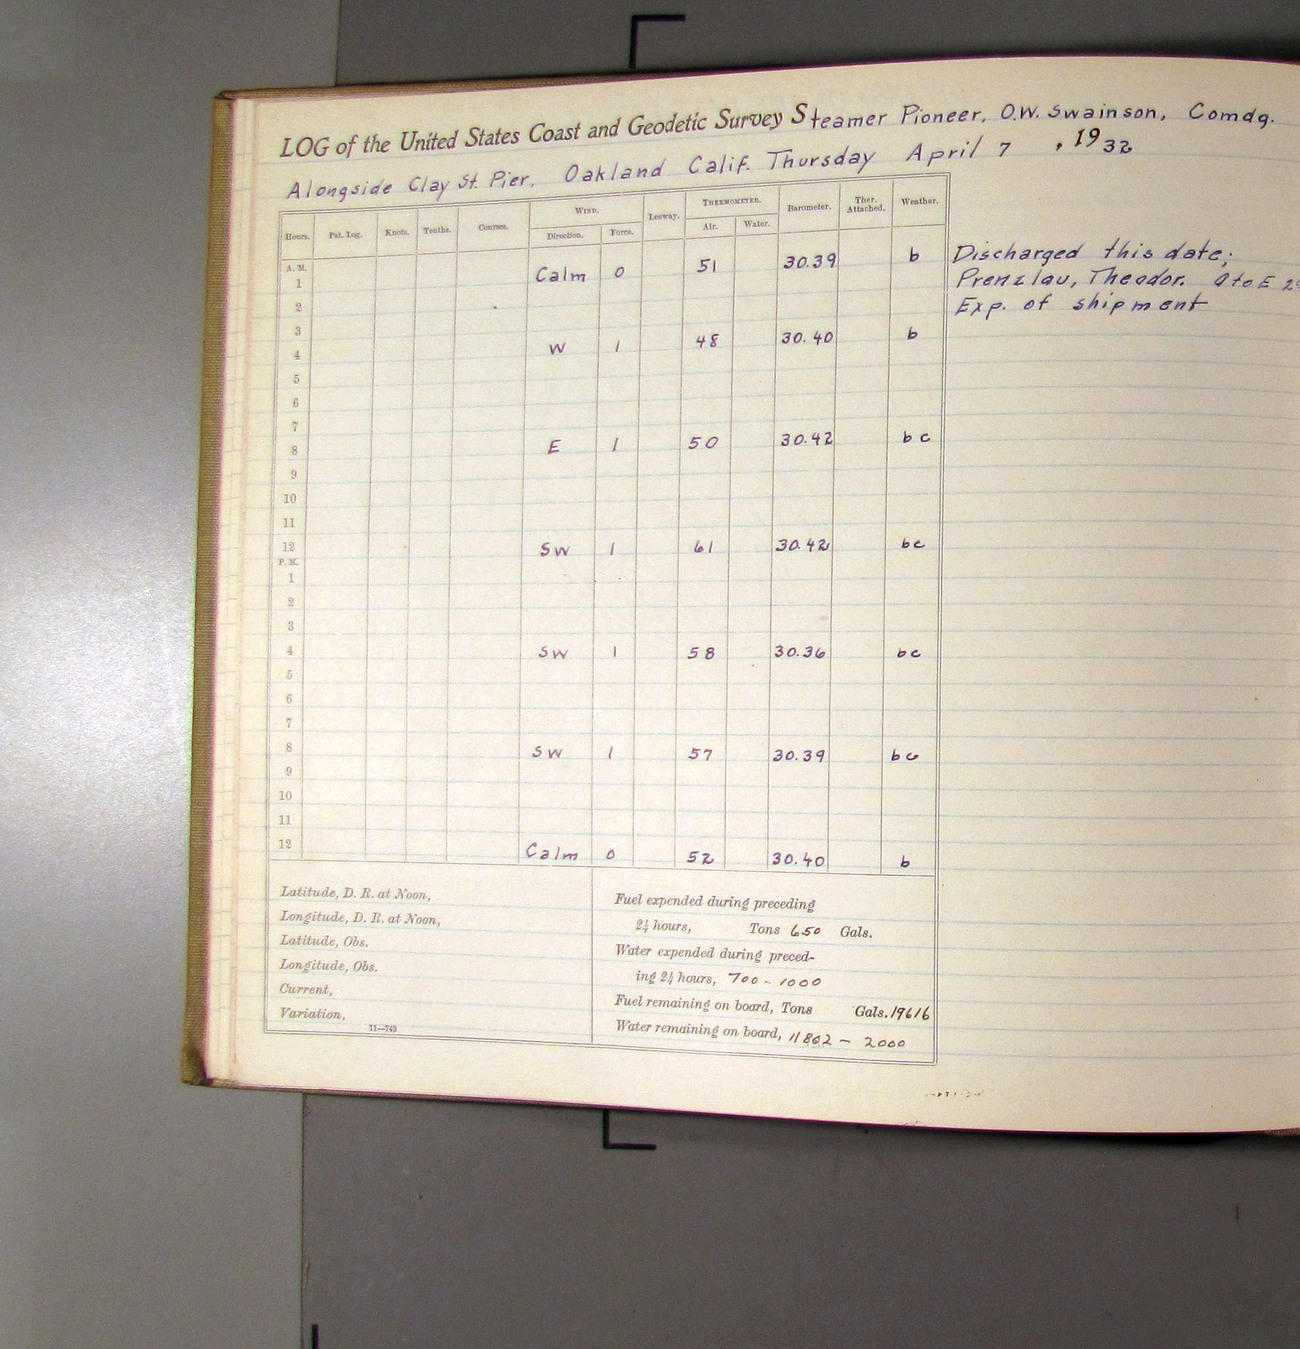 LOG of the United States Coast and Geodetic Survey Steamer Pioneer, O.W. Swainson, Comdg.
Alongside Clay St. Pier, Oakland Calif. Thursday April 7, 1932
Hours. Pat. Log. Knots. Tenths. Courses. WIND. Leeway. THERMOMETER. Barometer. Ther. Attached. Weather.
Direction. Force. Air. Water.
A. M.
1 Calm 0 51 30.39 b
2
3
4 W 1 48 30.40 b
5
6
7
8 E 1 50 30.42 bc
9
10
11
12 SW 1 61 30.42 bc
P. M.
1
2
3
4 SW 1 58 30.36 bc
5
6
7
8 SW 1 57 30.39 bc
9
10
11
12 Calm 0 52 30.40 b
Discharged this date;
Prenzlau, Theodor.
Exp. of shipment
Latitude, D. R. at Noon,
Longitude, D. R. at Noon,
Latitude, Obs.
Longitude, Obs.
Current,
Variation,
11—763
Fuel expended during preceding
24 hours, Tons 650 Gals.
Water expended during preced-
ing 24 hours, 700 - 1000
Fuel remaining on board, Tons Gals. 19616
Water remaining on board, 11802 - 2000